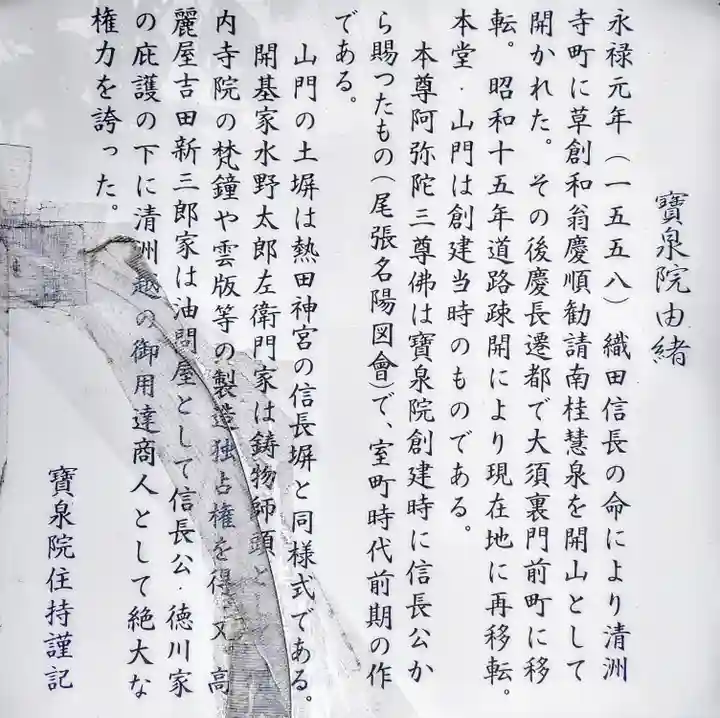 寶泉院由緒
永禄元年（一五五八）織田信長の命により清洲
寺町に草創和翁慶順勧請南桂慧泉を開山として
開かれた。その後慶長遷都で大須裏門前町に移
転。昭和十五年道路疎開により現在地に再移転。
本堂・山門は創建当時のものである。
本尊阿弥陀三尊佛は寶泉院創建時に信長公か
ら賜つたもの（尾張名陽図會）で、室町時代前期の作
である。
山門の土塀は熱田神宮の信長塀と同様式である。
開基家水野太郎左衛門家は鋳物師頭と
内寺院の梵鐘や雲版等の製造独占権を得、又、高
麗屋吉田新三郎家は油問屋として信長公・徳川家
の庇護の下に清洲越の御用達商人として絶大な
権力を誇った。
寶泉院住持謹記